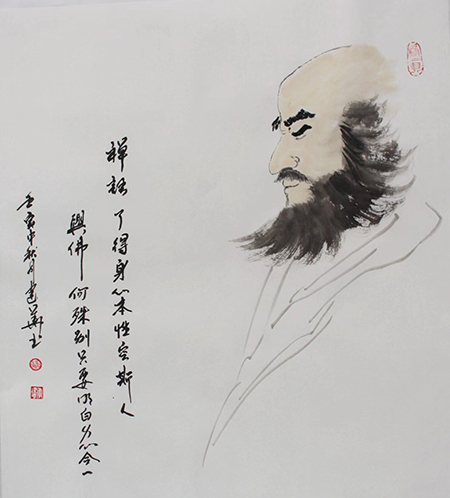 禅話 了得身心本性空斯人
與佛何殊别只要明白身心合一
壬寅中秋月建華